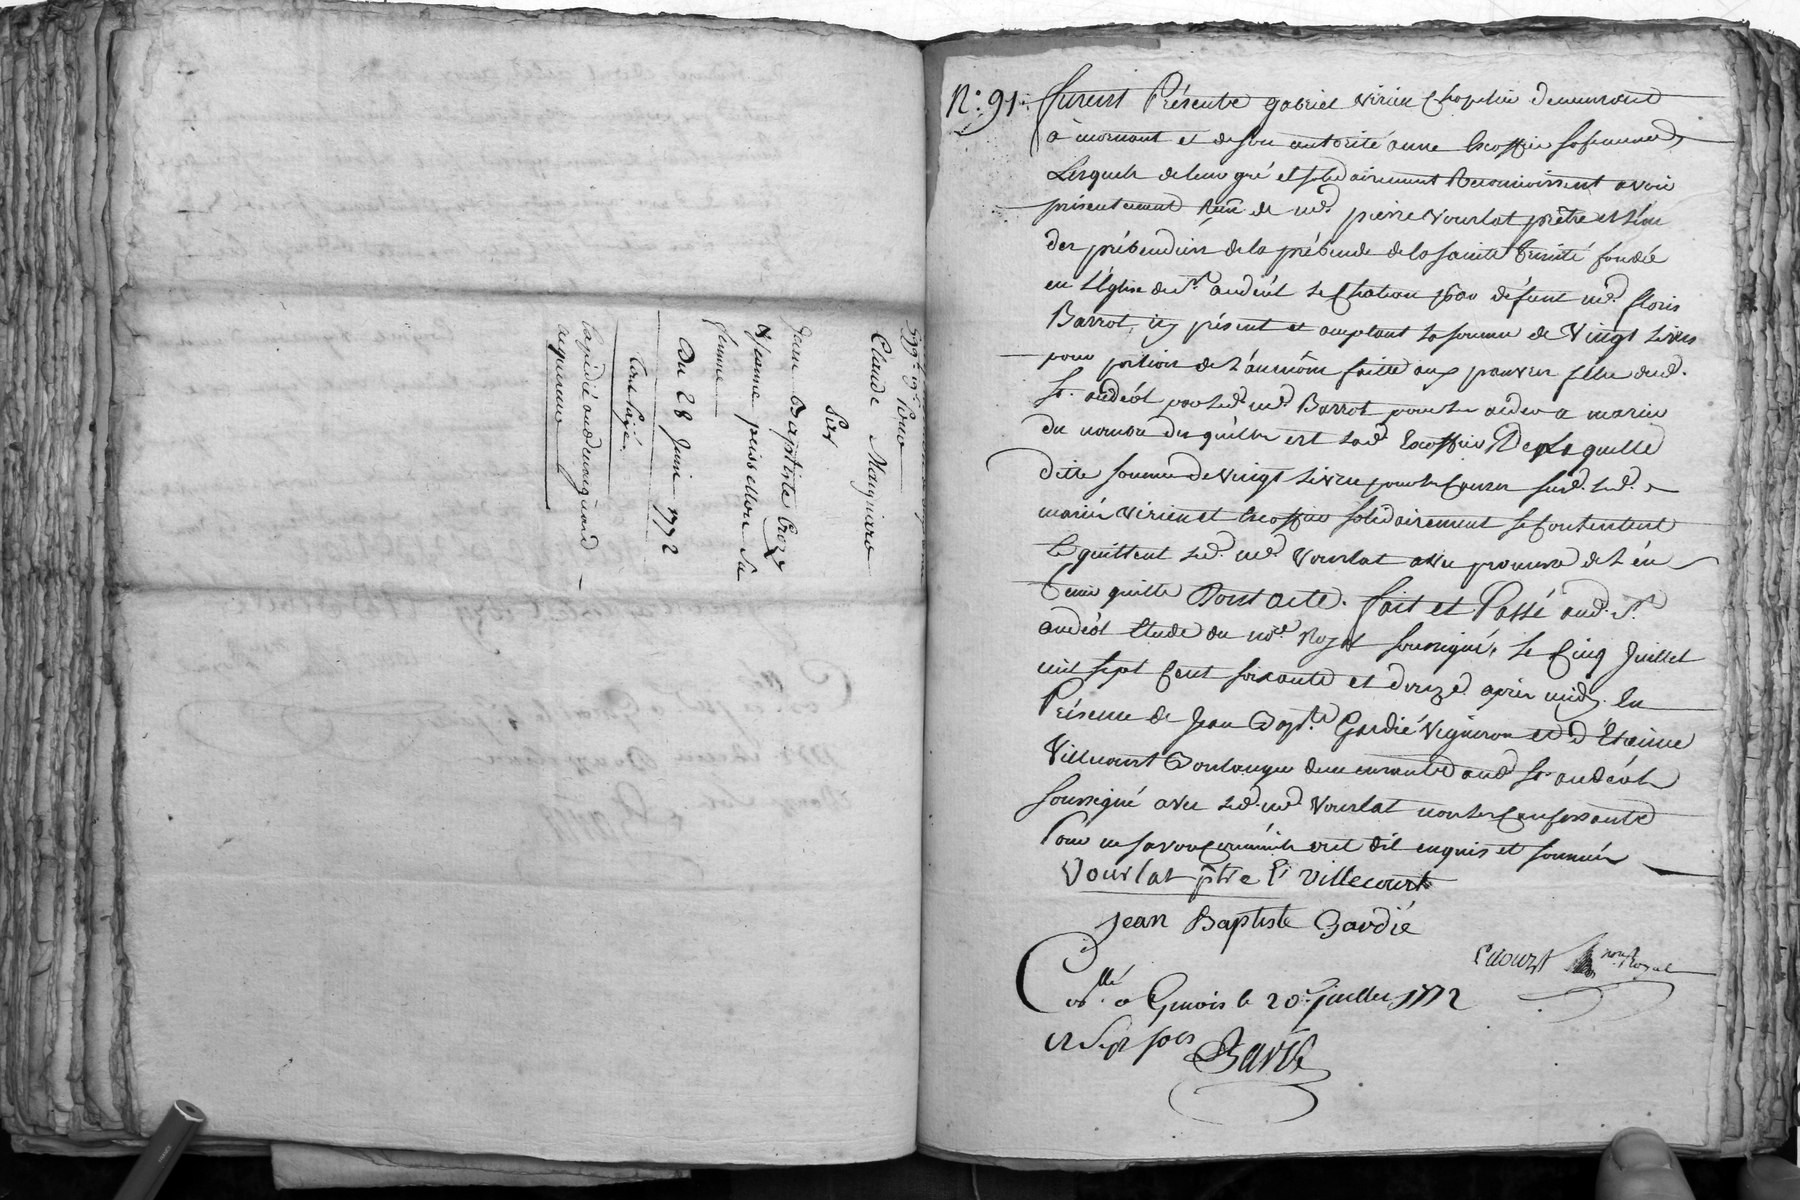 Pour
Claude Maignard
Sur
Jean Baptiste Croze
& Jeanne pissellon sa
femme
Du 28 Juin 1772
Controllé
Expedié aud. maignard
acquereur
N.° 91. furent Présents gabriel virieu Chapelier demeurant
à mornant et de son autorité anne Escoffier sa femme
Lesquels de leur gré et solidairement Reconnoissent avoir
présentement Reçu de mre. pierre Vourlat prêtre et l'un
des prébendiers de la prébende de la sainte Trinité fondée
en l'Eglise de St. andéol le Chateau par défunt mre. floris
Barrot, icy présent et acceptant la somme de Vingt Livres
pour portion de l'aumône faitte aux pauvres filles dud.
St. andéol par led. mre. Barrot pour les aider a marier
du nombre desquelles est lad. Escoffier De Laquelle
ditte somme de vingt Livres pour les causes susd. led.
mariés Virieu et Escoffier solidairement se contentent
Et quittent led. mre. Vourlat avec promesse de l'en
tenir quitte Dont acte. fait et Passé aud. St.
andéol Etude du nore. Royal soussigné, le Cinq Juillet
mil sept Cent soixante et douze après midy. En
Présence de Jean Bapte. Gardié Vigneron et d'Etienne
Villecourt Boulanger demeurants aud. St. andéol
soussignés avec led. mre. Vourlat non les Confessants
Pour ne savoir comme ils ont dit enquis et sommés
Vourlat ptre E villecourt
jean Baptiste Gardié
nore Royal
Collé. a Givors le 20e. juillet 1772
et Sept sols